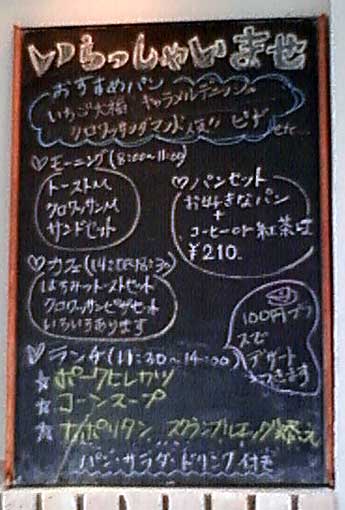 いらっしゃいませ
おすすめパン
いちご大福 キャラメルデニッシュ
クロワッサンダマンド 人気!! ピザ etc...
♡モーニング(8:00〜11:00)
トーストM
クロワッサンM
サンドセット
♡パンセット
お好きなパン
+
コーヒーor紅茶
¥210.
♡カフェ(14:00〜18:30)
はちみつトーストセット
クロワッサンピザセット
いろいろあります
100円プラ
スで
デザート
つきます
♡ランチ(11:30〜14:00)
☆ポークヒレカツ
☆コーンスープ
☆ナポリタン スクランブルエッグ添え
パン・サラダ・ドリンク付き